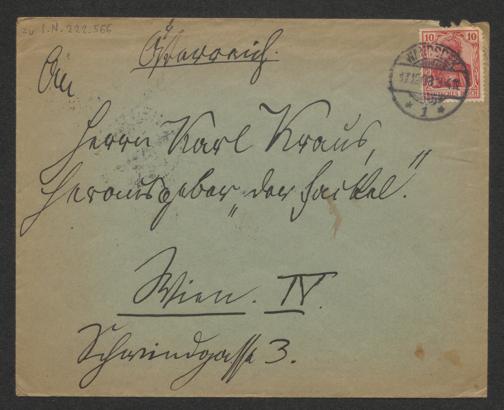 zu I.N. 222.566
Österreich.
An
Herrn Karl Kraus,
Herausgeber „der Fackel".
Wien. IV.
Schwindgasse 3.
10 10
DEUTSCHES REICH
1